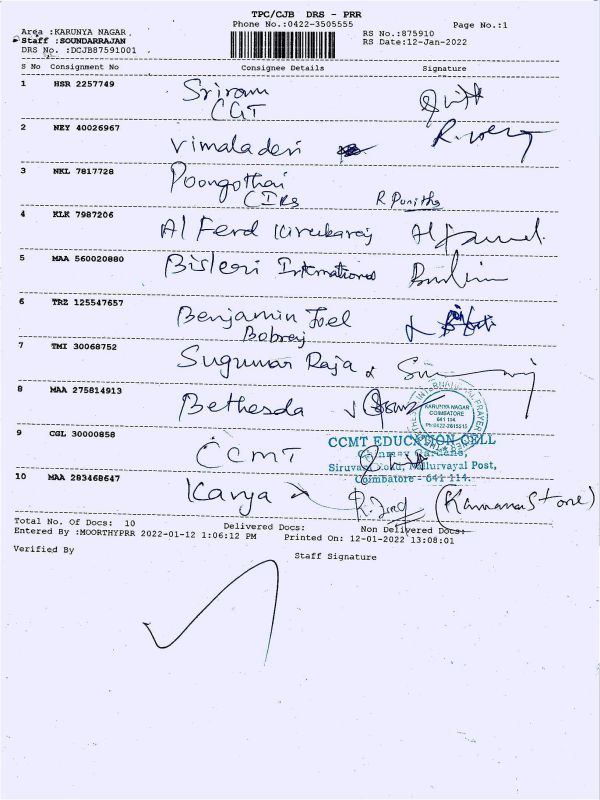 TPC/CJB DRS - PRR
Phone No.:0422-3505555
Page No.:1
Area :KARUNYA NAGAR
Staff :SOUNDARRAJAN
DRS No. :DCJB87591001
RS No.:875910
RS Date:12-Jan-2022
S No Consignment No Consignee Details Signature
1 HSR 2257749 Sriram
CGT
2 NEY 40026967 Vimaladevi
3 NKL 7817728 Poongothai
R. Punitha
4 KLK 7987206 Al Ferd
5 MAA 560020880 Bisleri International
6 TRZ 125547657 Benjamin Joel
Bobraj
7 TMI 30068752 Sugumar Raja
8 MAA 275814913 Bethesda
KARUNYA NAGAR
COIMBATORE
641 114.
9 CGL 30000858 CCMT
CCMT EDUCATION CELL
Siruvani Road, Nallurvayal Post,
Coimbatore - 641 114.
10 MAA 283468647 Karya
Total No. Of Docs: 10 Delivered Docs: Non Delivered Docs:
Entered By :MOORTHYPRR 2022-01-12 1:06:12 PM Printed On: 12-01-2022 13:08:01
Verified By Staff Signature